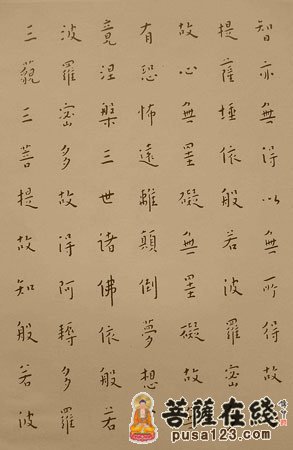 智亦無得以無所得故
提薩埵依般若波羅蜜
故心無罣礙無罣礙故
有恐怖遠離顛倒夢想
竟涅槃三世諸佛依般若
波羅蜜多故得阿耨多羅
三藐三菩提故知般若波
菩薩在綫
pusa123.com